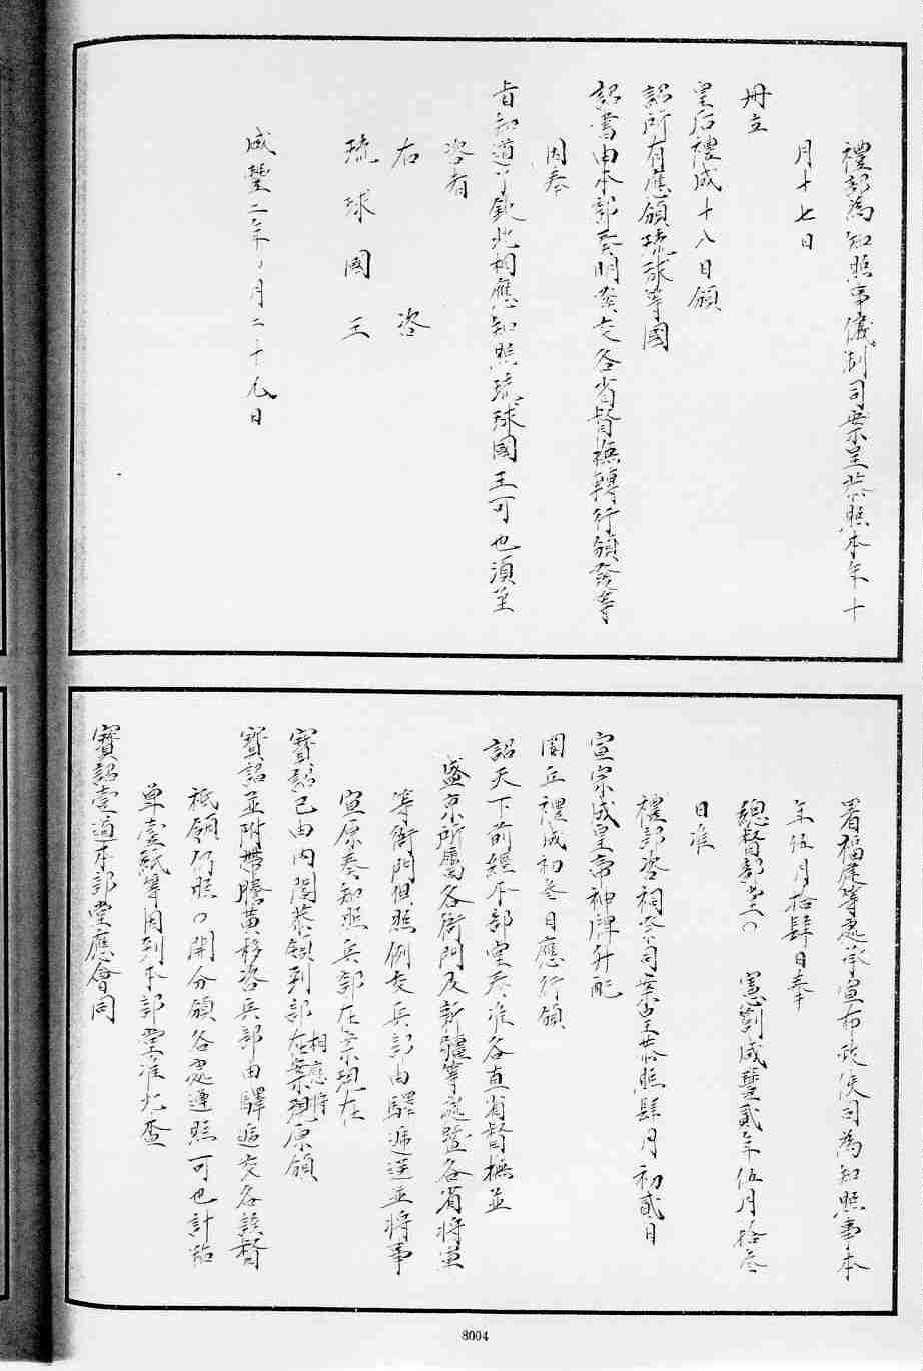 禮部為知照事儀制司案呈恭照本年十
月十七日
冊立
皇后禮成十八日頒
詔所有應頒琉球等國
詔書由本部奏明發交各省督撫轉行頒發等
因奉
旨知道了欽此相應知照琉球國王可也須至
咨者
右咨
琉球國王
咸豐二年 月二十九日
署福建等處承宣布政使司為知照事本
年伍月拾肆日奉
總督部堂 憲劄咸豐貳年伍月拾叁
日准
禮部咨祠祭司案呈恭照肆月初貳日
宣宗成皇帝神牌升配
圜丘禮成初叁日應行頒
詔天下前經本部堂奏准各直省督撫並
盛京所屬各衙門及新疆等處暨各省將軍
等衙門俱照例交兵部由驛遞送並將事
宣原奏知照兵部在案現在
寶詔已由內閣恭領到部在案現原頒
相應將
寶詔並附帶謄黃移咨兵部由驛遞交各該督
祇領 照 開分頒各處遵照可也計黏
單壹紙等因到本部堂准此
寶詔壹道本部堂應會同
8004